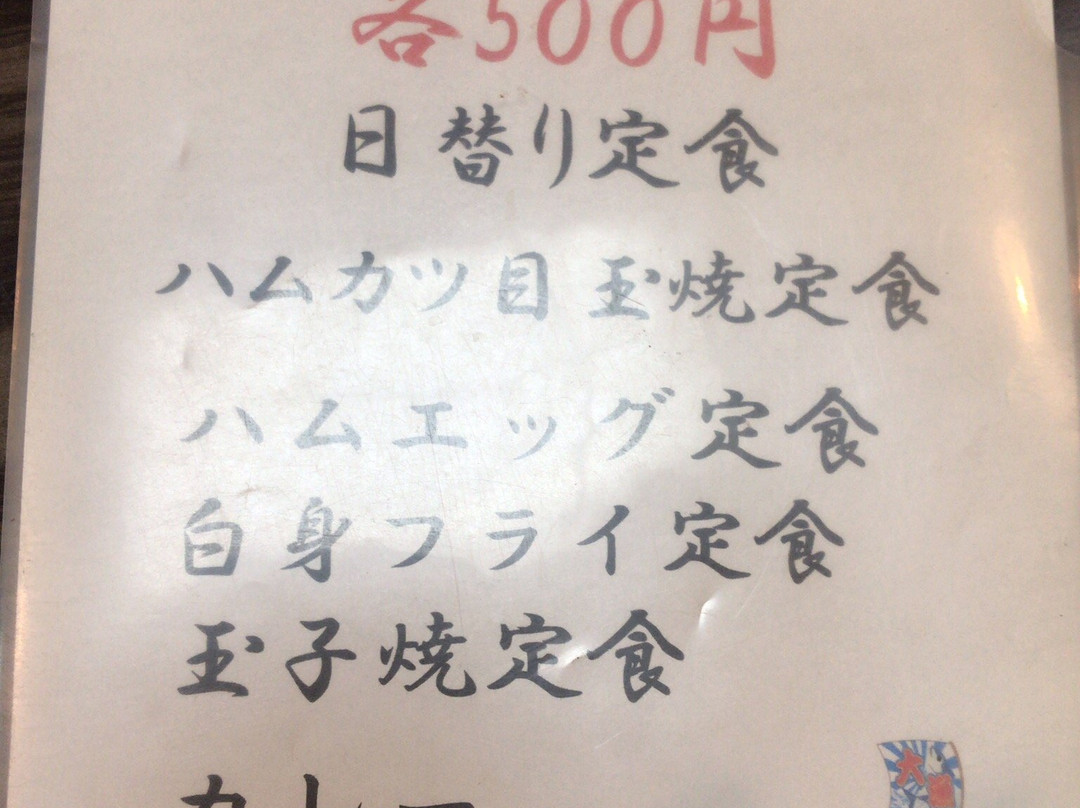 各500円
日替り定食
ハムカツ目玉焼定食
ハムエッグ定食
白身フライ定食
玉子焼定食
カレー
大